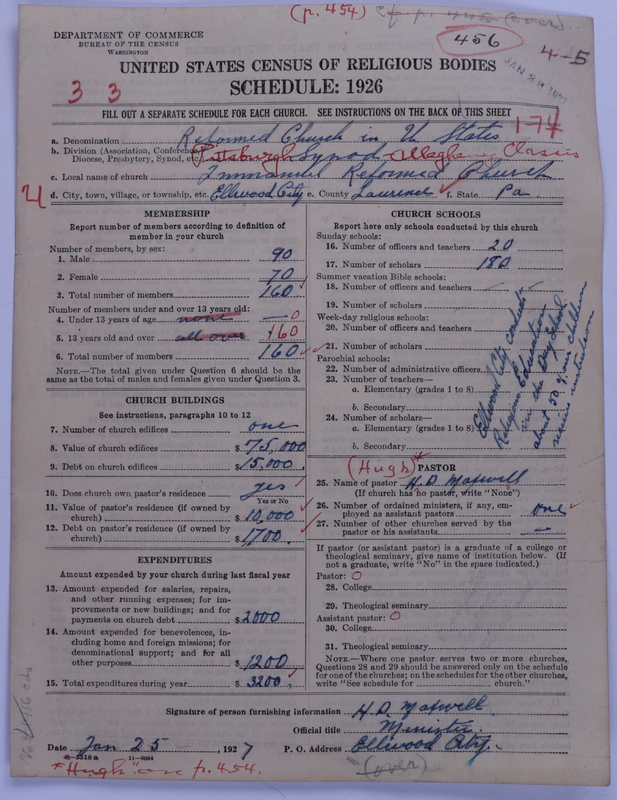 (p. 454) cf. p. 442 (over)
DEPARTMENT OF COMMERCE
BUREAU OF THE CENSUS
WASHINGTON
456
4-5
UNITED STATES CENSUS OF RELIGIOUS BODIES
3 3
SCHEDULE: 1926
FILL OUT A SEPARATE SCHEDULE FOR EACH CHURCH. SEE INSTRUCTIONS ON THE BACK OF THIS SHEET
174
a. Denomination Reformed Church in U States
b. Division (Association, Conference, Diocese, Presbytery, Synod, etc.) Pittsburgh Synod Allegheny Classis
c. Local name of church Immanuel Reformed Church
d. City, town, village, or township, etc. Ellwood City e. County Laurence f. State Pa
MEMBERSHIP
Report number of members according to definition of member in your church
Number of members, by sex:
1. Male 90
2. Female 70
3. Total number of members 160
Number of members under and over 13 years old:
4. Under 13 years of age none — 0
5. 13 years old and over all over 160
6. Total number of members 160
NOTE.—The total given under Question 6 should be the same as the total of males and females given under Question 3.
CHURCH BUILDINGS
See instructions, paragraphs 10 to 12
7. Number of church edifices one
8. Value of church edifices $ 75,000
9. Debt on church edifices $ 15,000
10. Does church own pastor's residence yes
Yes or No
11. Value of pastor's residence (if owned by church) $ 10,000
12. Debt on pastor's residence (if owned by church) $ 1,700
EXPENDITURES
Amount expended by your church during last fiscal year
13. Amount expended for salaries, repairs, and other running expenses; for improvements or new buildings; and for payments on church debt $ 2000
14. Amount expended for benevolences, including home and foreign missions; for denominational support; and for all other purposes $ 1200
15. Total expenditures during year $ 3200
CHURCH SCHOOLS
Report here only schools conducted by this church
Sunday schools:
16. Number of officers and teachers 20
17. Number of scholars 180
Summer vacation Bible schools:
18. Number of officers and teachers
19. Number of scholars
Week-day religious schools:
20. Number of officers and teachers
21. Number of scholars
Parochial schools:
22. Number of administrative officers
23. Number of teachers—
a. Elementary (grades 1 to 8)
b. Secondary
24. Number of scholars—
a. Elementary (grades 1 to 8)
b. Secondary
Ellwood City conducts
Religious Education
in the Day School
about 50 of our children
receive instruction
(Hugh)*
PASTOR
25. Name of pastor H. D. Maxwell
(If church has no pastor, write "None")
26. Number of ordained ministers, if any, employed as assistant pastors one
27. Number of other churches served by the pastor or his assistants —
If pastor (or assistant pastor) is a graduate of a college or theological seminary, give name of institution below. (If not a graduate, write "No" in the space indicated.)
Pastor: O
28. College
29. Theological seminary
Assistant pastor: O
30. College
31. Theological seminary
NOTE.—Where one pastor serves two or more churches, Questions 28 and 29 should be answered only on the schedule for one of the churches; on the schedules for the other churches, write "See schedule for church."
Signature of person furnishing information H. D. Maxwell
Official title Minister
Date Jan 25, 1927 P. O. Address Ellwood City
11-9034
*"Hugh" on p. 454.
(over)